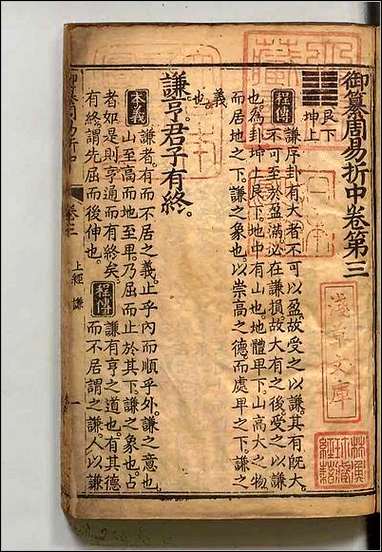 御纂周易折中卷第三
艮下
坤上
程傳
謙序卦有大者不可以盈故受之以謙其有旣大
不可至於盈滿必在謙損故大有之後受之以謙
也爲卦坤上艮下地中有山也地體卑下山高大之物
而居地之下謙之象也以崇高之德而處卑之下謙之
義也
謙亨君子有終
本義
謙者有而不居之義止乎內而順乎外謙之意也
山至高而地至卑乃屈而止於其下謙之象也占
者如是則亨通而有終矣
有終謂先屈而後伸也
程傳
謙有亨之道也有其德
而不居謂之謙人以謙
御纂周易折中
卷三
上經 謙
一